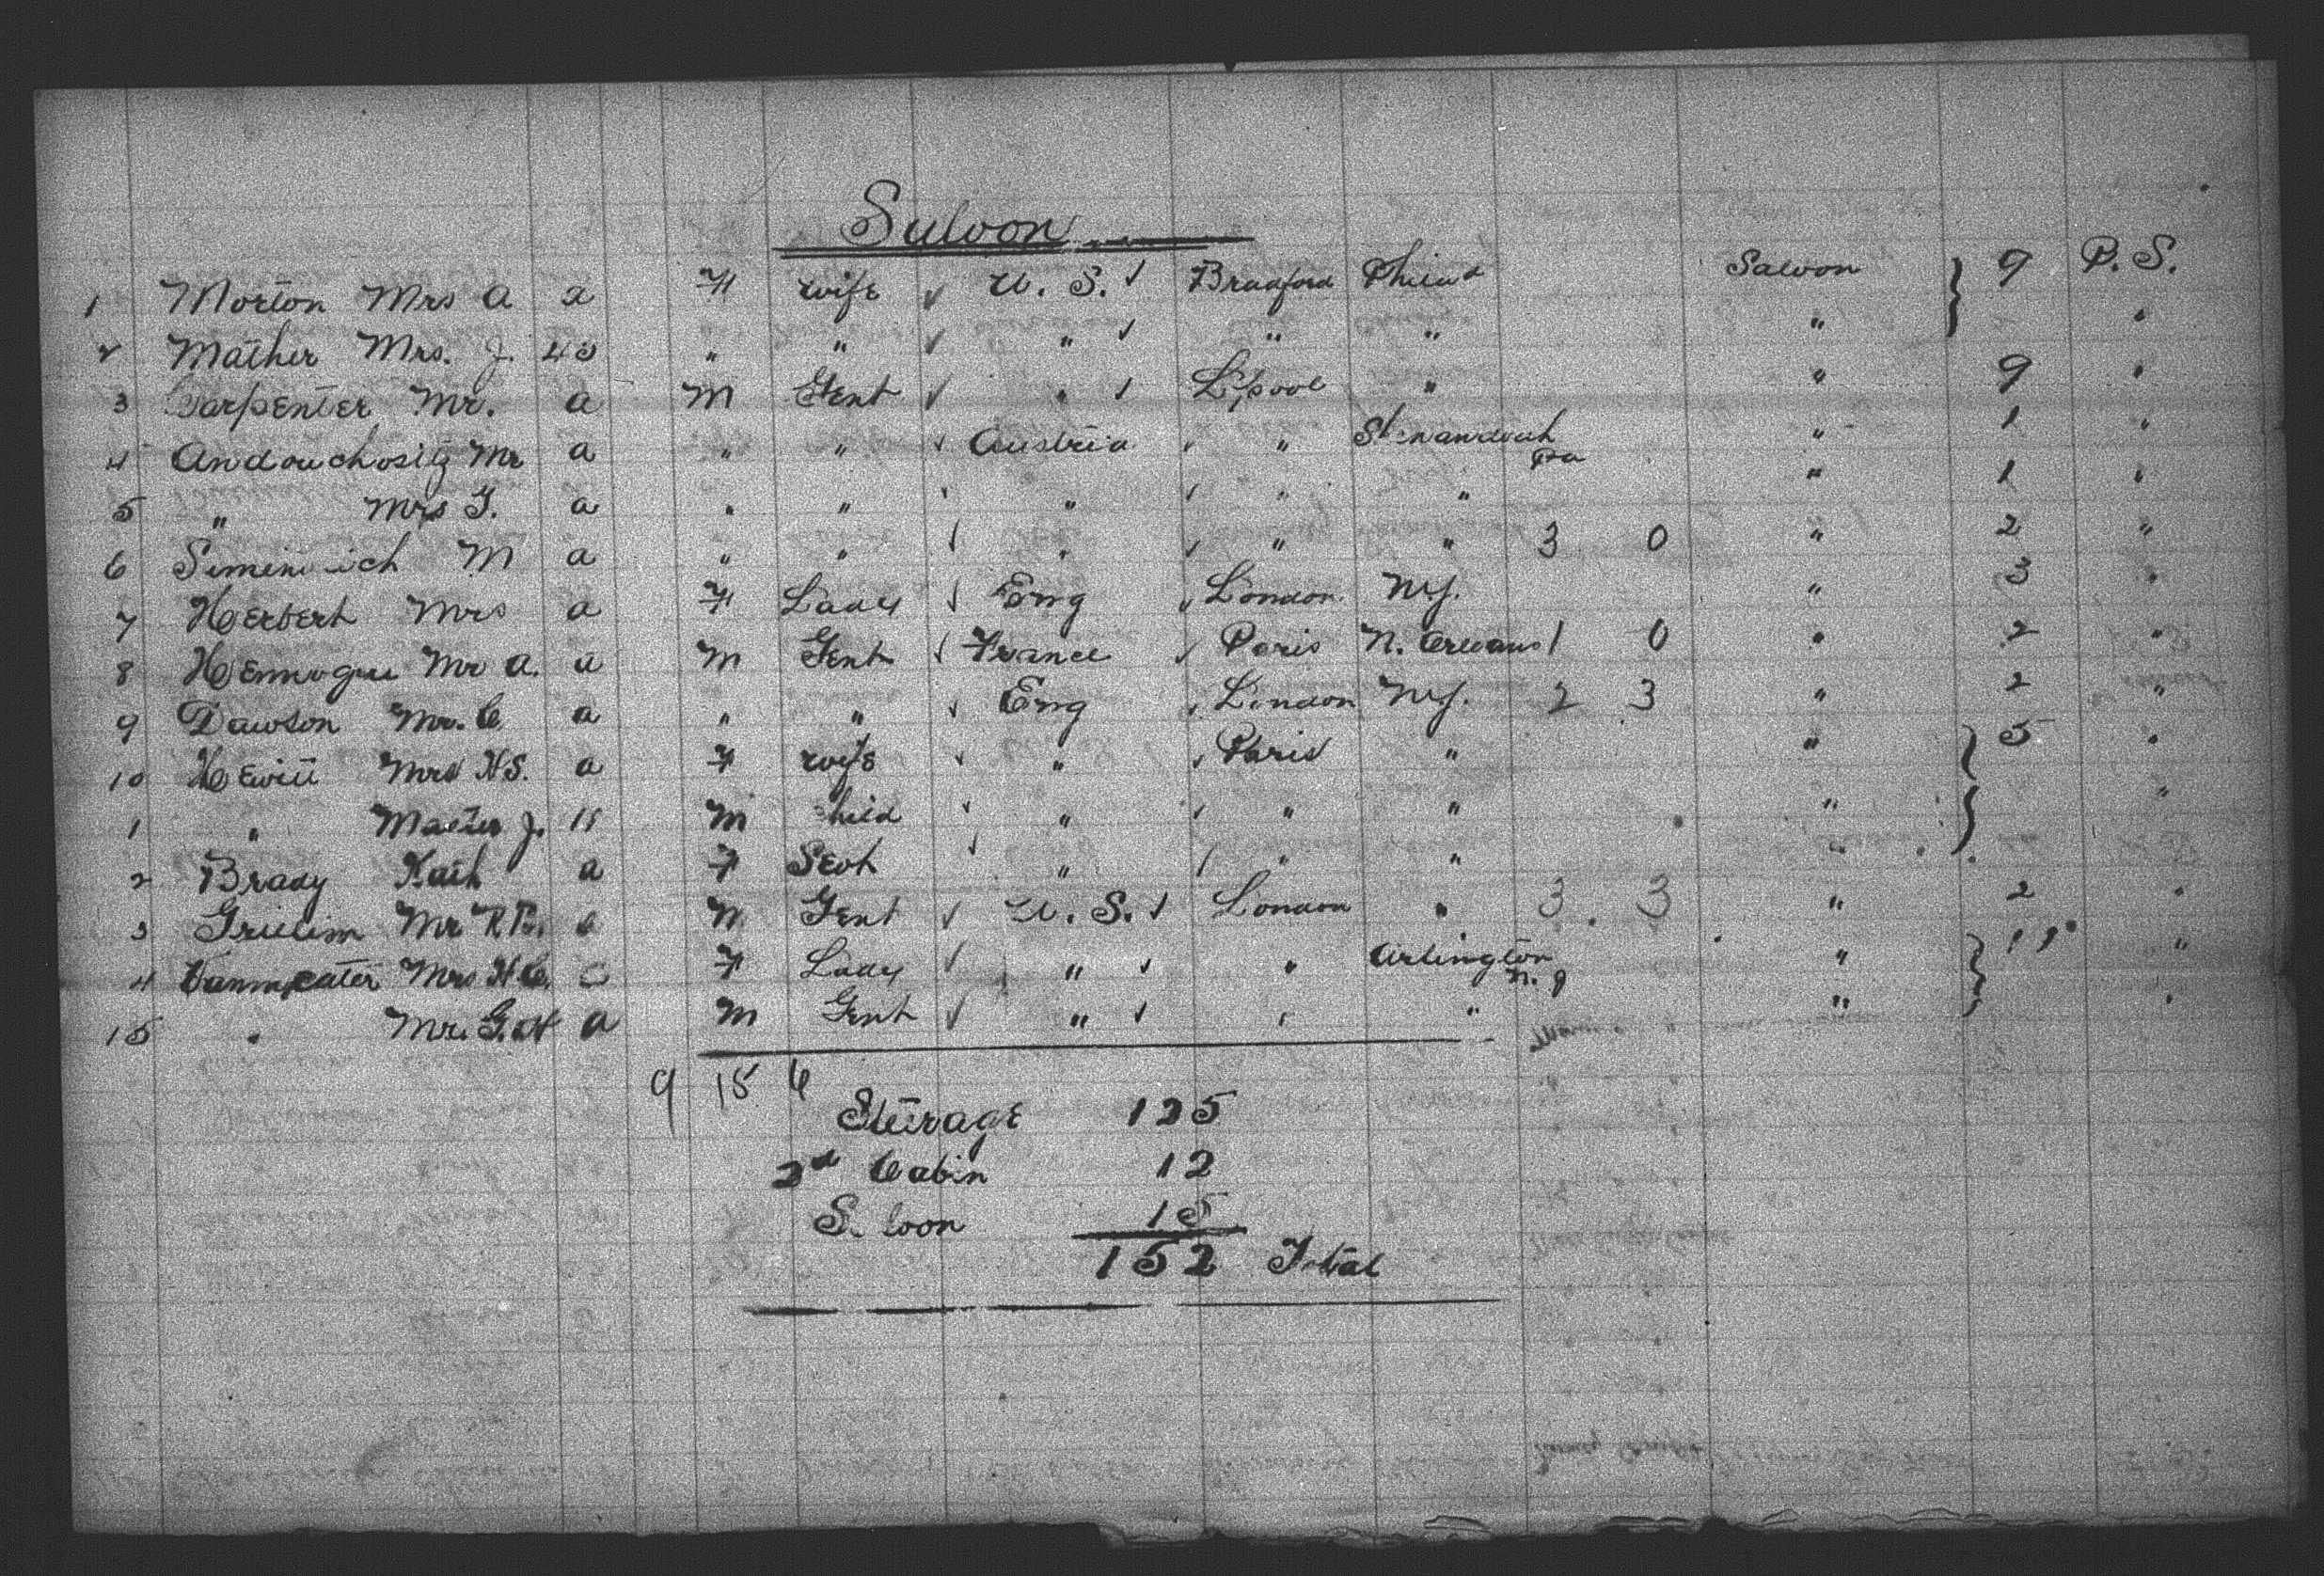 Saloon
1 Morton Mrs A a F wife U. S. Bradford Philad Saloon 9 P. S.
2 Mather Mrs. J. 40 " " " " " " "
3 Carpenter Mr. a M Gent " L'pool " " 9 "
4 Andouchosig Mr a " " Austria " Shenandoah Pa " 1 "
5 " Mrs G. a " " " " " " 1 "
6 M a " " " " " 3 0 " 2 "
7 Herbert Mrs a F Lady Eng London N.Y. " 3 "
8 Mr A. a M Gent France Paris N. Orleans 1 0 " 2 "
9 Dawson Mr. C a " " Eng London N.Y. 2 3 " 2 "
10 Hewitt Mrs H S. a F wife " Paris " " 5 "
1 " Master J. 11 M Child " " " " "
2 Brady Kath a F Servt " " " "
3 Mr R B. a M Gent U. S. London " 3. 3 " 2 "
4 Vanmeater Mrs H C. a F Lady " " Arlington N. J " 11 "
15 " Mr. G. H a M Gent " " " " "
9 15 6
Steerage 125
2d Cabin 12
Saloon 15
152 Total